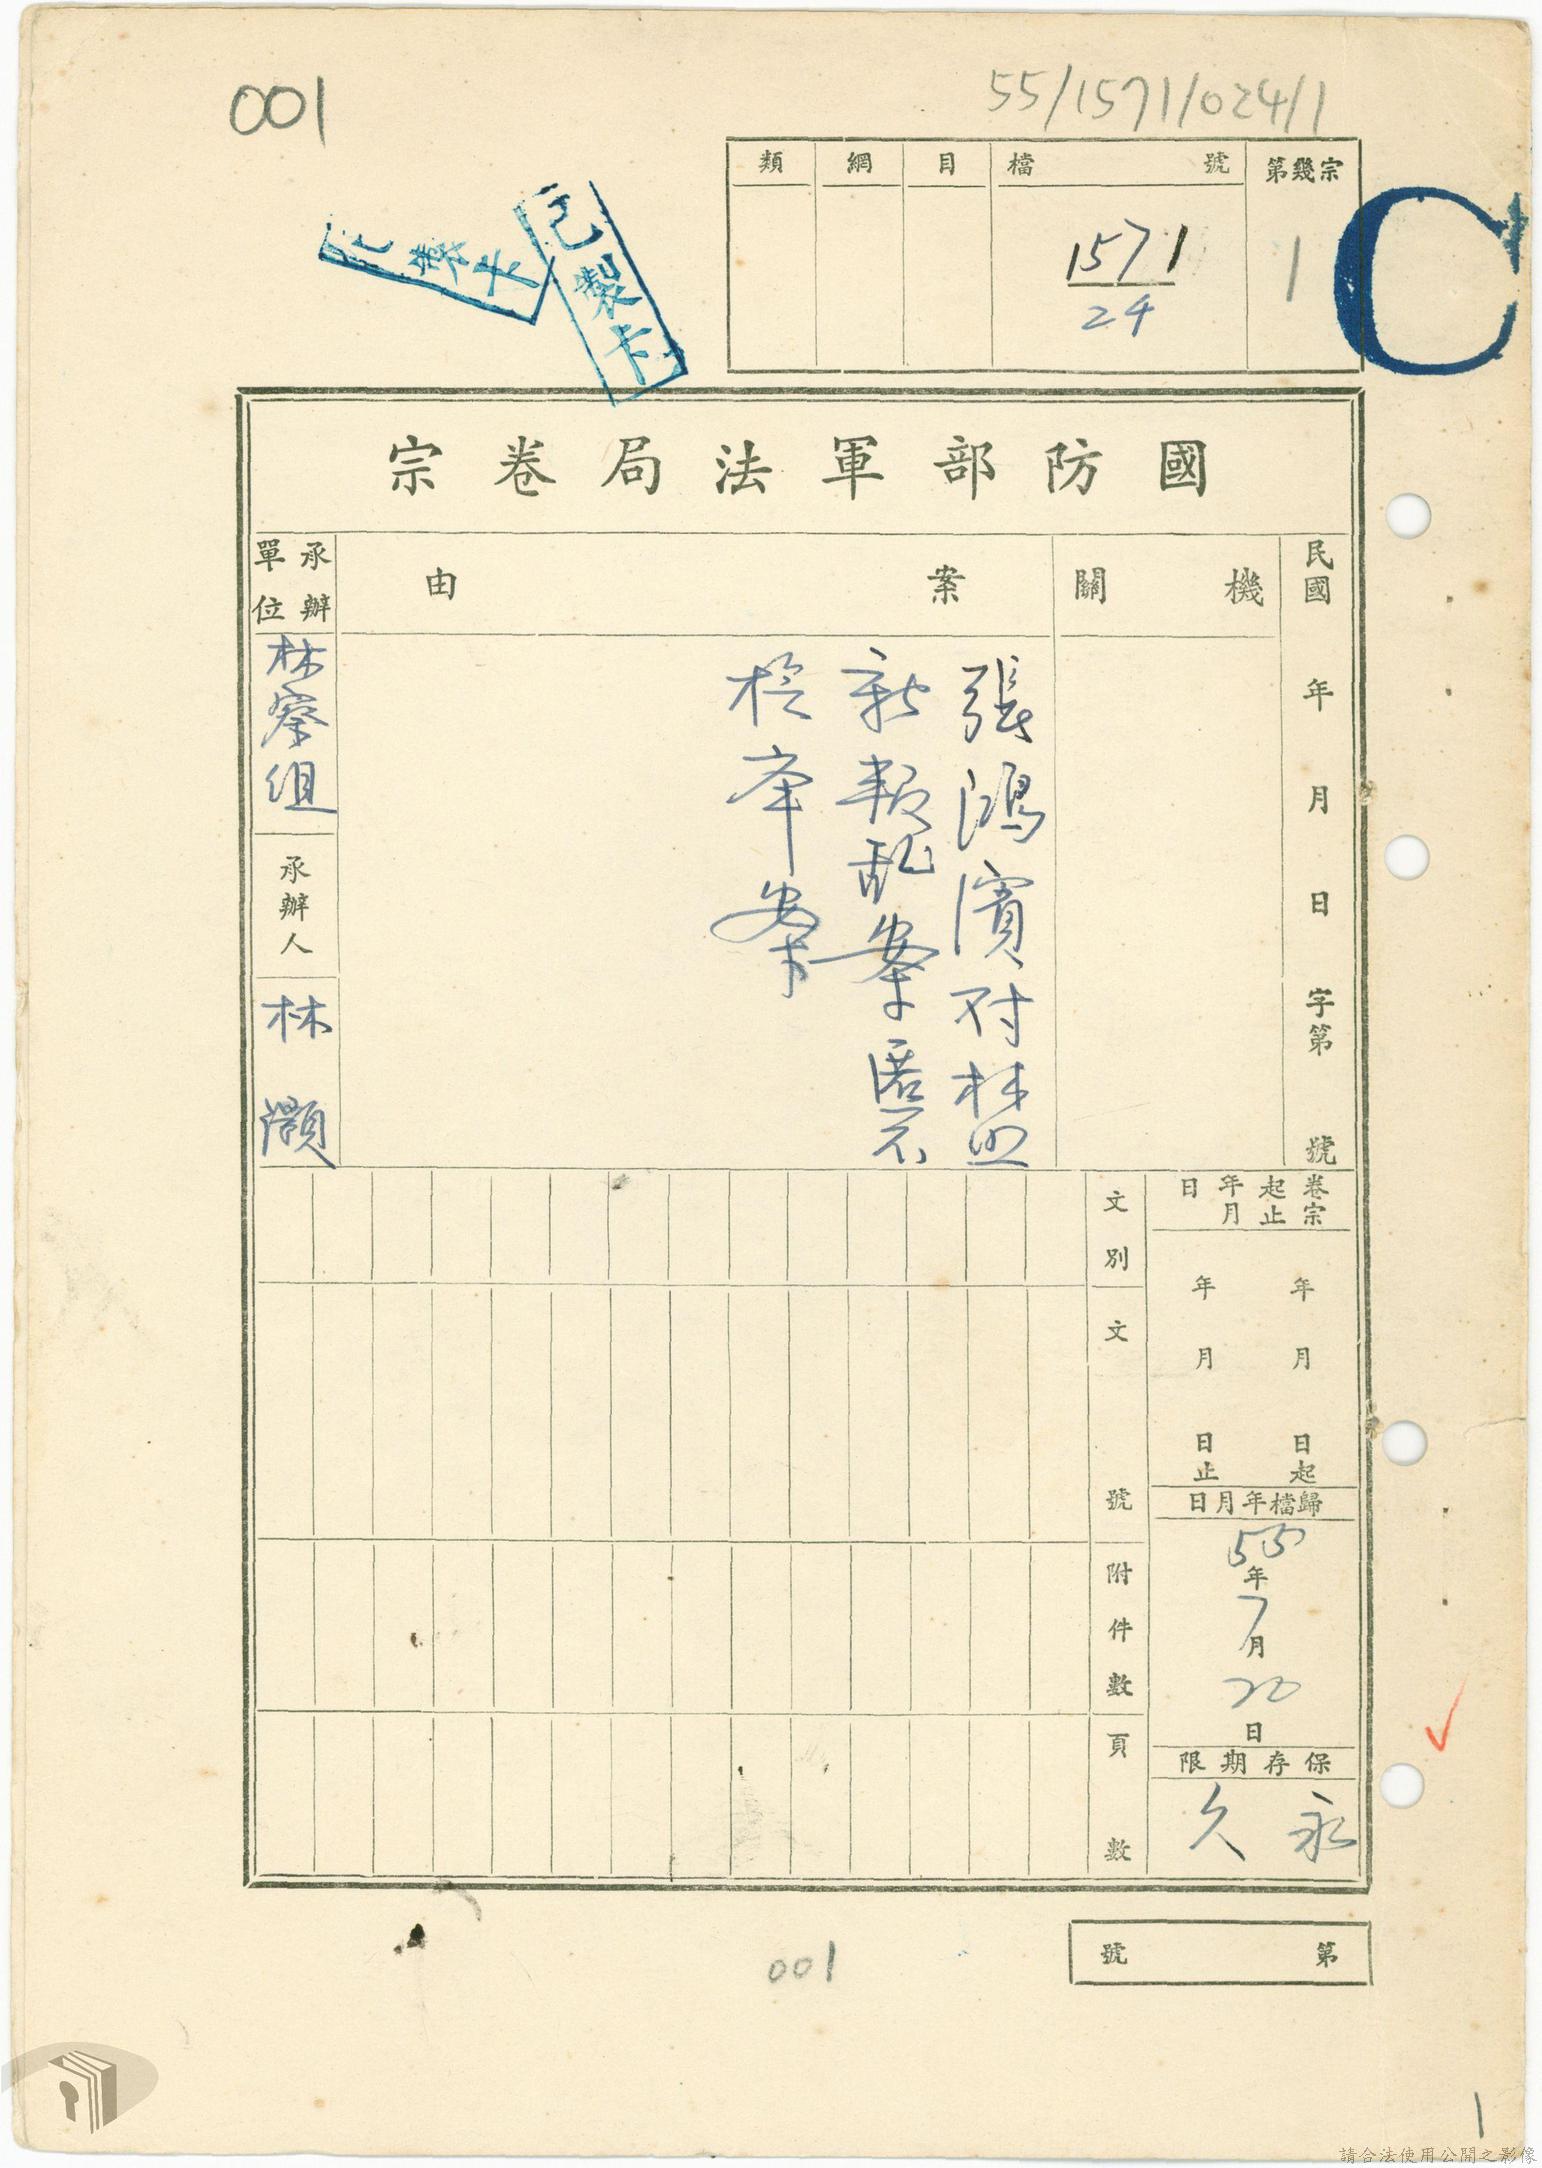 001
55/1571/024/1
類 網 目 檔號 第幾宗
1571
24
1
C
已製卡
已製卡
國防部軍法局卷宗
民國 年 月 日 字第 號
機關
案由
張鴻濱對林
新叛乱案匿不
檢舉案
承辦單位
檢察組
承辦人
林灝
卷宗起止年月日
年 月 日起
年 月 日止
歸檔年月日
55年
7月
20
日
保存期限
永久
文別
文號
附件數
頁數
第 號
001
1
請合法使用公開之影像